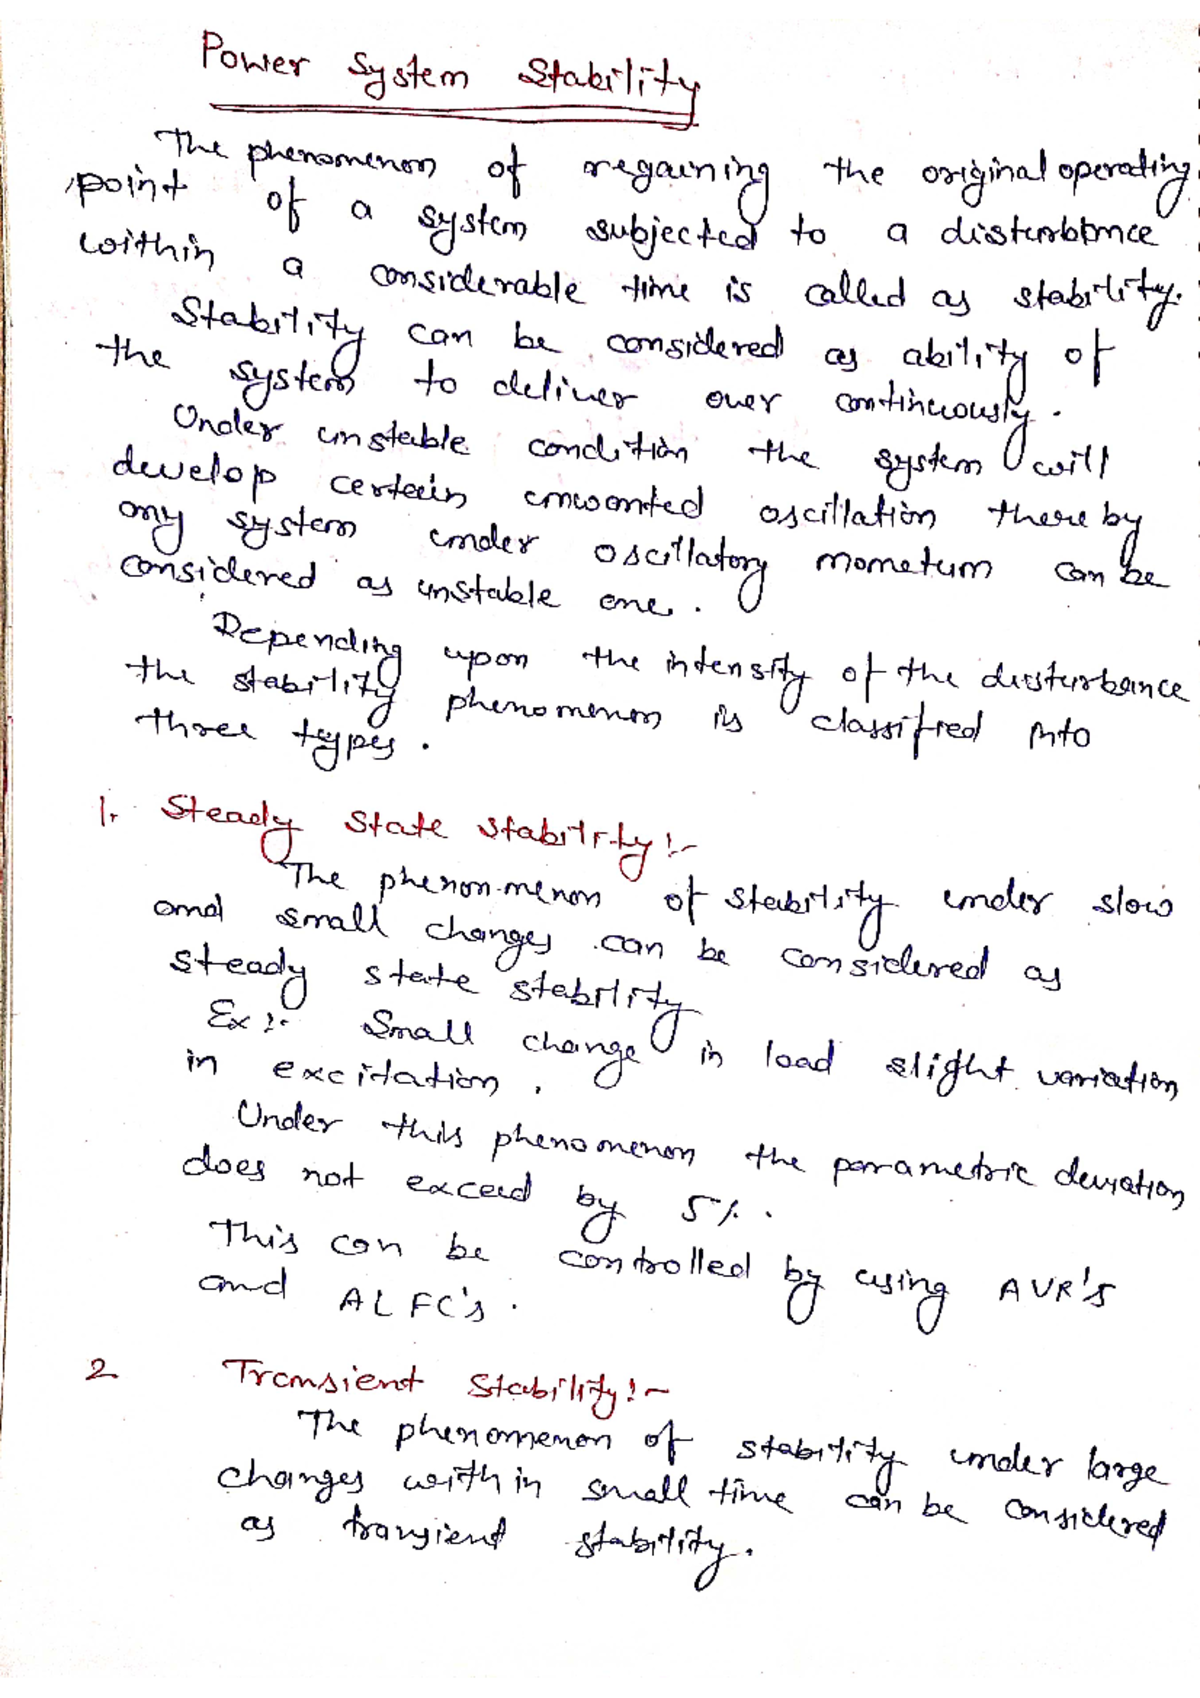 Power System Stability
The phenomenon of regaining the original operating
point of a system subjected to a disturbance
within a considerable time is called as stability.
Stability can be considered as ability of
the system to deliver over continuously.
Under unstable condition the system will
develop certain unwanted oscillation there by
any system under oscillatory mometum can be
considered as unstable one.
Depending upon the intensity of the disturbance
the stability phenomenon is classified into
three types.
1. Steady State Stability:-
The phenon-menon of stability under slow
and small changes can be considered as
steady state stability
Ex:- Small change in load slight variation
in excitation.
Under this phenomenon the parrametric deviation
does not exceed by 5%.
This can be controlled by using AVR's
and ALFC's.
2 Transient Stability:-
The phenomenon of stability under large
changes with in small time can be considered
as transient stability.